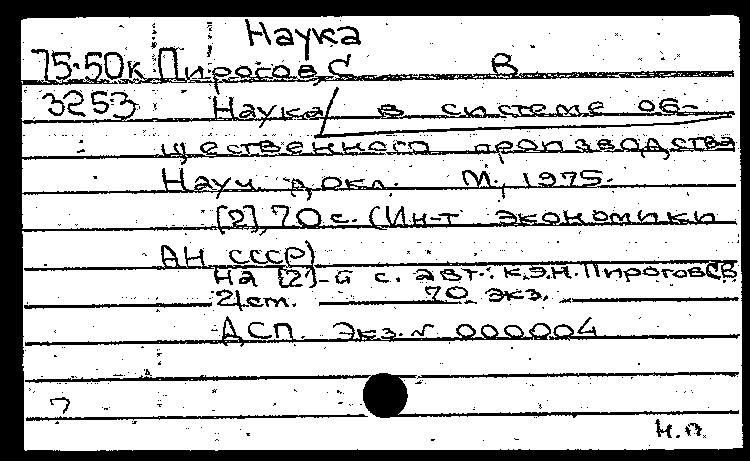 Наука
75-50к Пирогов, С В
3253 Наука/ в системе об-
щественного производства
Науч. докл. М., 1975.
[2], 70 с. (Ин-т экономики
АН СССР)
На [2]-й с. авт.: к.э.н. Пирогов СВ
2/ст. 70 экз.
ДСП. Экз. № 000004
7
н.п.